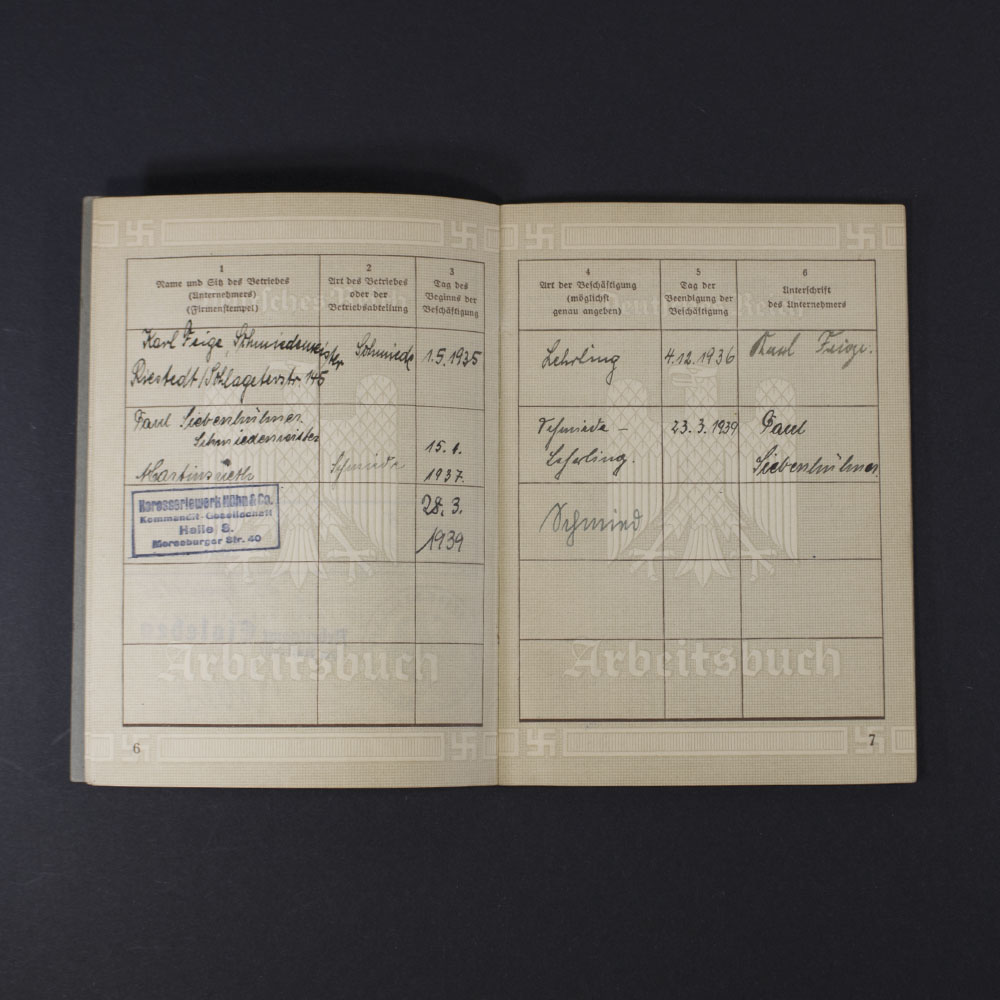 1
Name und Sitz des Betriebes
(Unternehmers)
(Firmenstempel)
2
Art des Betriebes
oder der
Betriebsabteilung
3
Tag des
Beginns der
Beschäftigung
Karl Feige, Schmiedemeister
Riestedt/Schlageterstr. 145
Schmiede
1.5.1935
Paul Siebenhühner
Schmiedemeister
Martinsrieth
Schmiede
15. 1.
1937.
Karosseriewerk Kühn & Co.
Kommandit-Gesellschaft
Halle S.
Merseburger Str. 40
28. 3.
1939
Arbeitsbuch
6
4
Art der Beschäftigung
(möglichst
genau angeben)
5
Tag der
Beendigung der
Beschäftigung
6
Unterschrift
des Unternehmers
Deutsches Reich
Lehrling
4.12.1936
Karl Feige.
Schmiede -
Lehrling.
23. 3. 1939
Paul
Siebenhühner
Schmied
Arbeitsbuch
7